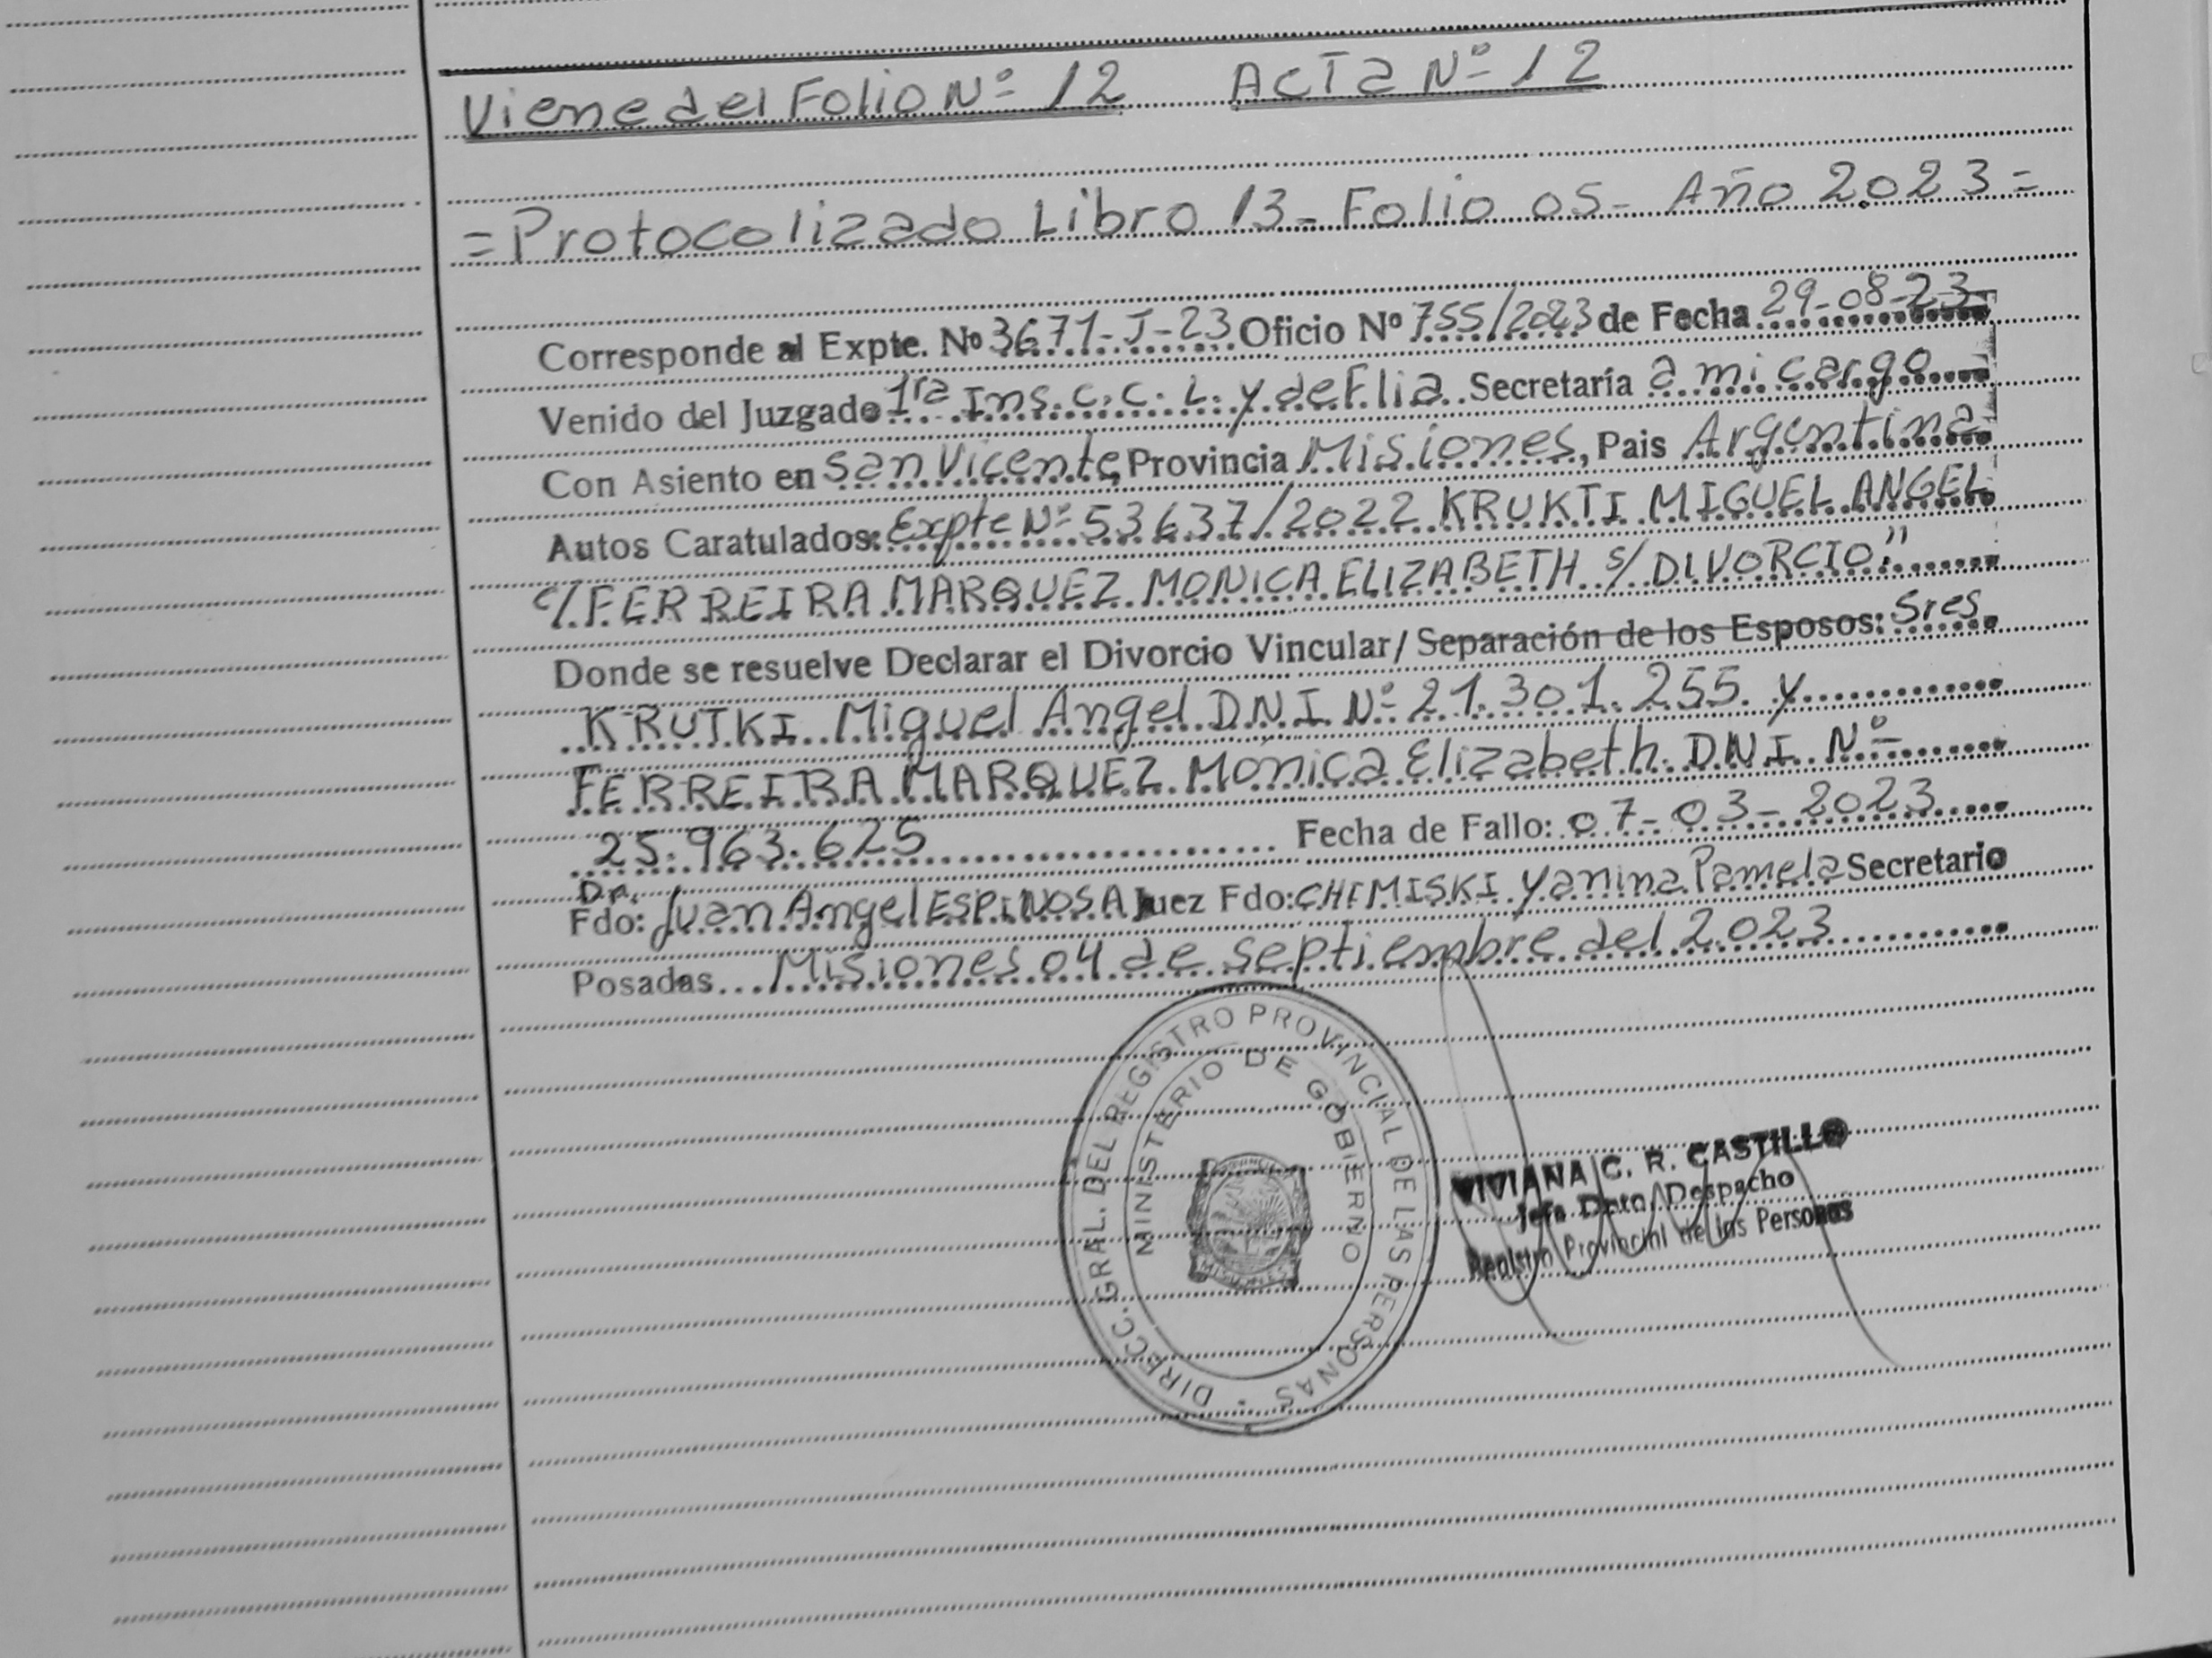 Viene del Folio Nº 12 ACTa Nº 12
= Protocolizado Libro 13 - Folio 05 - Año 2.023 =
Corresponde al Expte. Nº 3671-J-23 Oficio Nº 755/2023 de Fecha 29-08-23
Venido del Juzgado 1ra Ins. C. C. L. y de Flia. Secretaría a mi cargo
Con Asiento en San Vicente, Provincia Misiones, Pais Argentina
Autos Caratulados: Expte Nº 53637/2022 KRUKTI MIGUEL ANGEL
c/ FERREIRA MARQUEZ MONICA ELIZABETH s/ DIVORCIO"
Donde se resuelve Declarar el Divorcio Vincular/ Separación de los Esposos: Sres.
KRUTKI Miguel Angel D.N.I. Nº 21.301.255 y
FERREIRA MARQUEZ Mónica Elizabeth D.N.I. Nº
25.963.625 Fecha de Fallo: 07-03-2023
Fdo: Dr. Juan Angel ESPINOSA Juez Fdo: CHEMISKI Yanina Pamela Secretario
Posadas Misiones 04 de septiembre del 2.023
DIRECC. GRAL. DEL REGISTRO PROVINCIAL DE LAS PERSONAS
MINISTERIO DE GOBIERNO
MISIONES
VIVIANA C. R. CASTILLO
Jefa Dpto. Despacho
Registro Provincial de las Personas